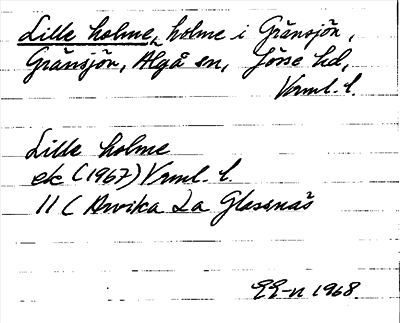 Lille holme, holme i Gränsjön,
Gränsjön, Älgå sn, Jösse hd,
Vrml. l.
Lille holme
ek (1967) Vrml. l.
11 C Arvika 2a Glasenäs
EE-n 1968.